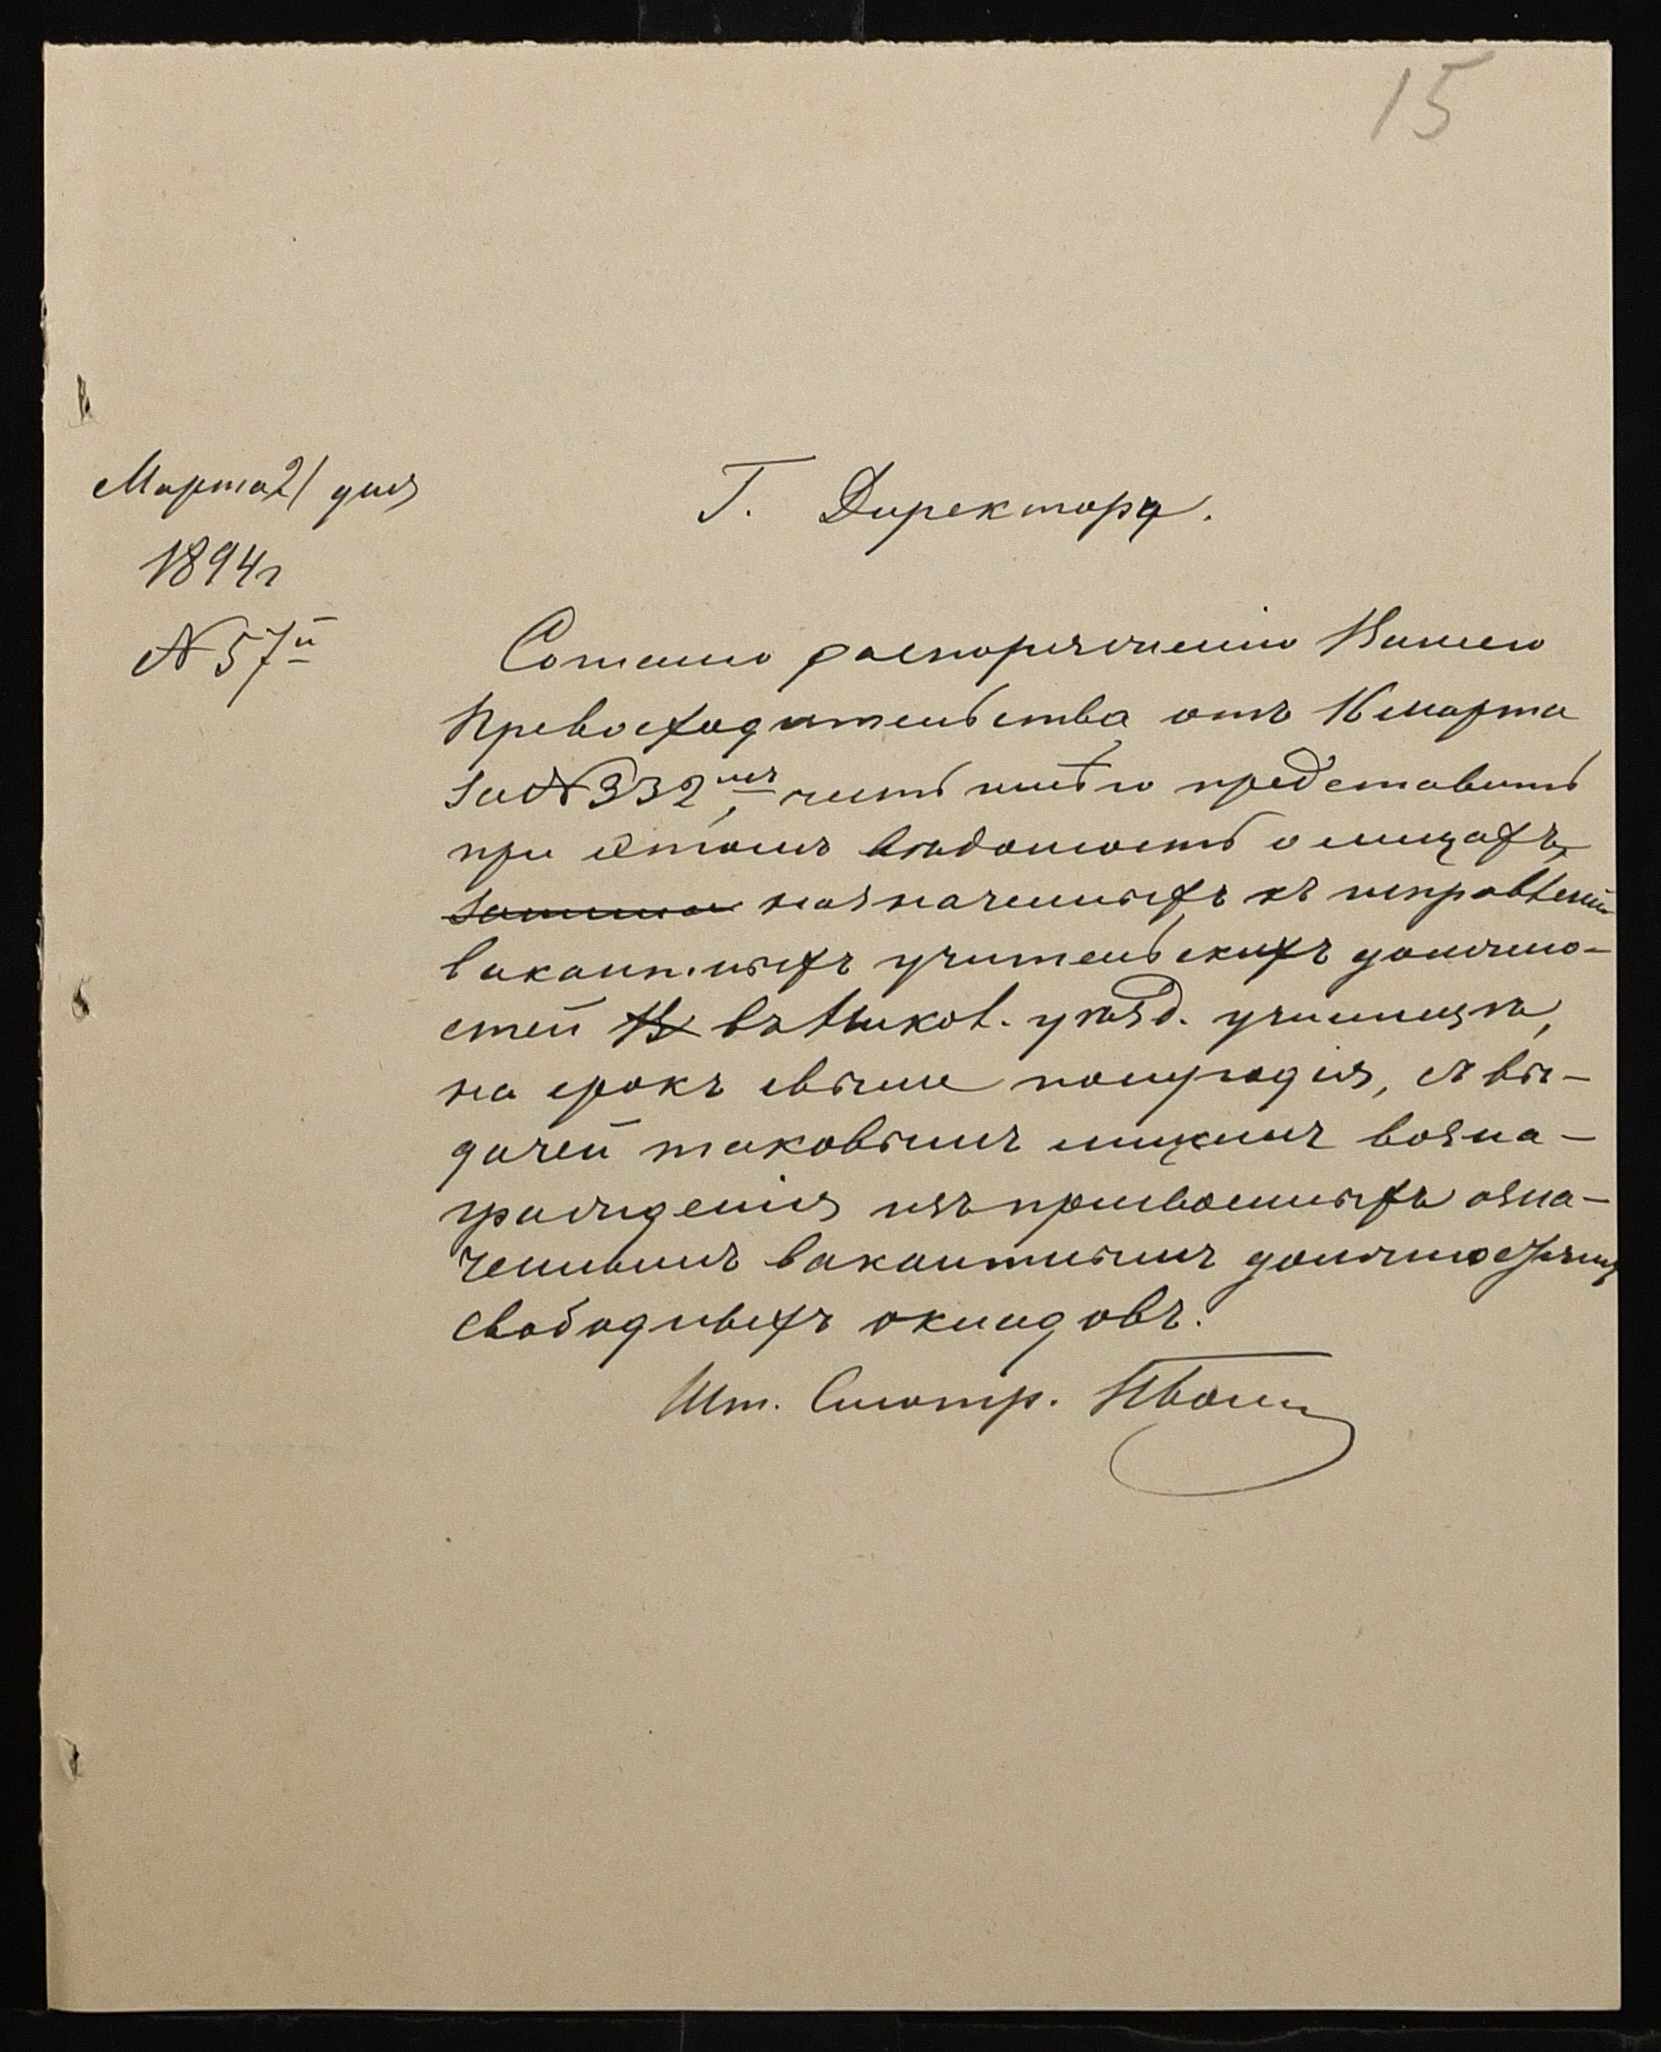 15
Марта 21 дня
1894 г
№ 57й
Г. Директору.
Согласно распоряжению Вашего
Превосходительства отъ 16 марта
за № 332мъ, честь имѣю представить
при этомъ вѣдомость о лицахъ,
назначенныхъ къ исправленію
вакантныхъ учительскихъ должно-
стей въ уѣзд. училищѣ,
на срокъ свыше полугодія, съ вы-
дачей таковымъ лицамъ возна-
гражденія изъ присвоенныхъ озна-
ченнымъ вакантнымъ должностямъ
свободныхъ окладовъ.
Шт. Смотр.